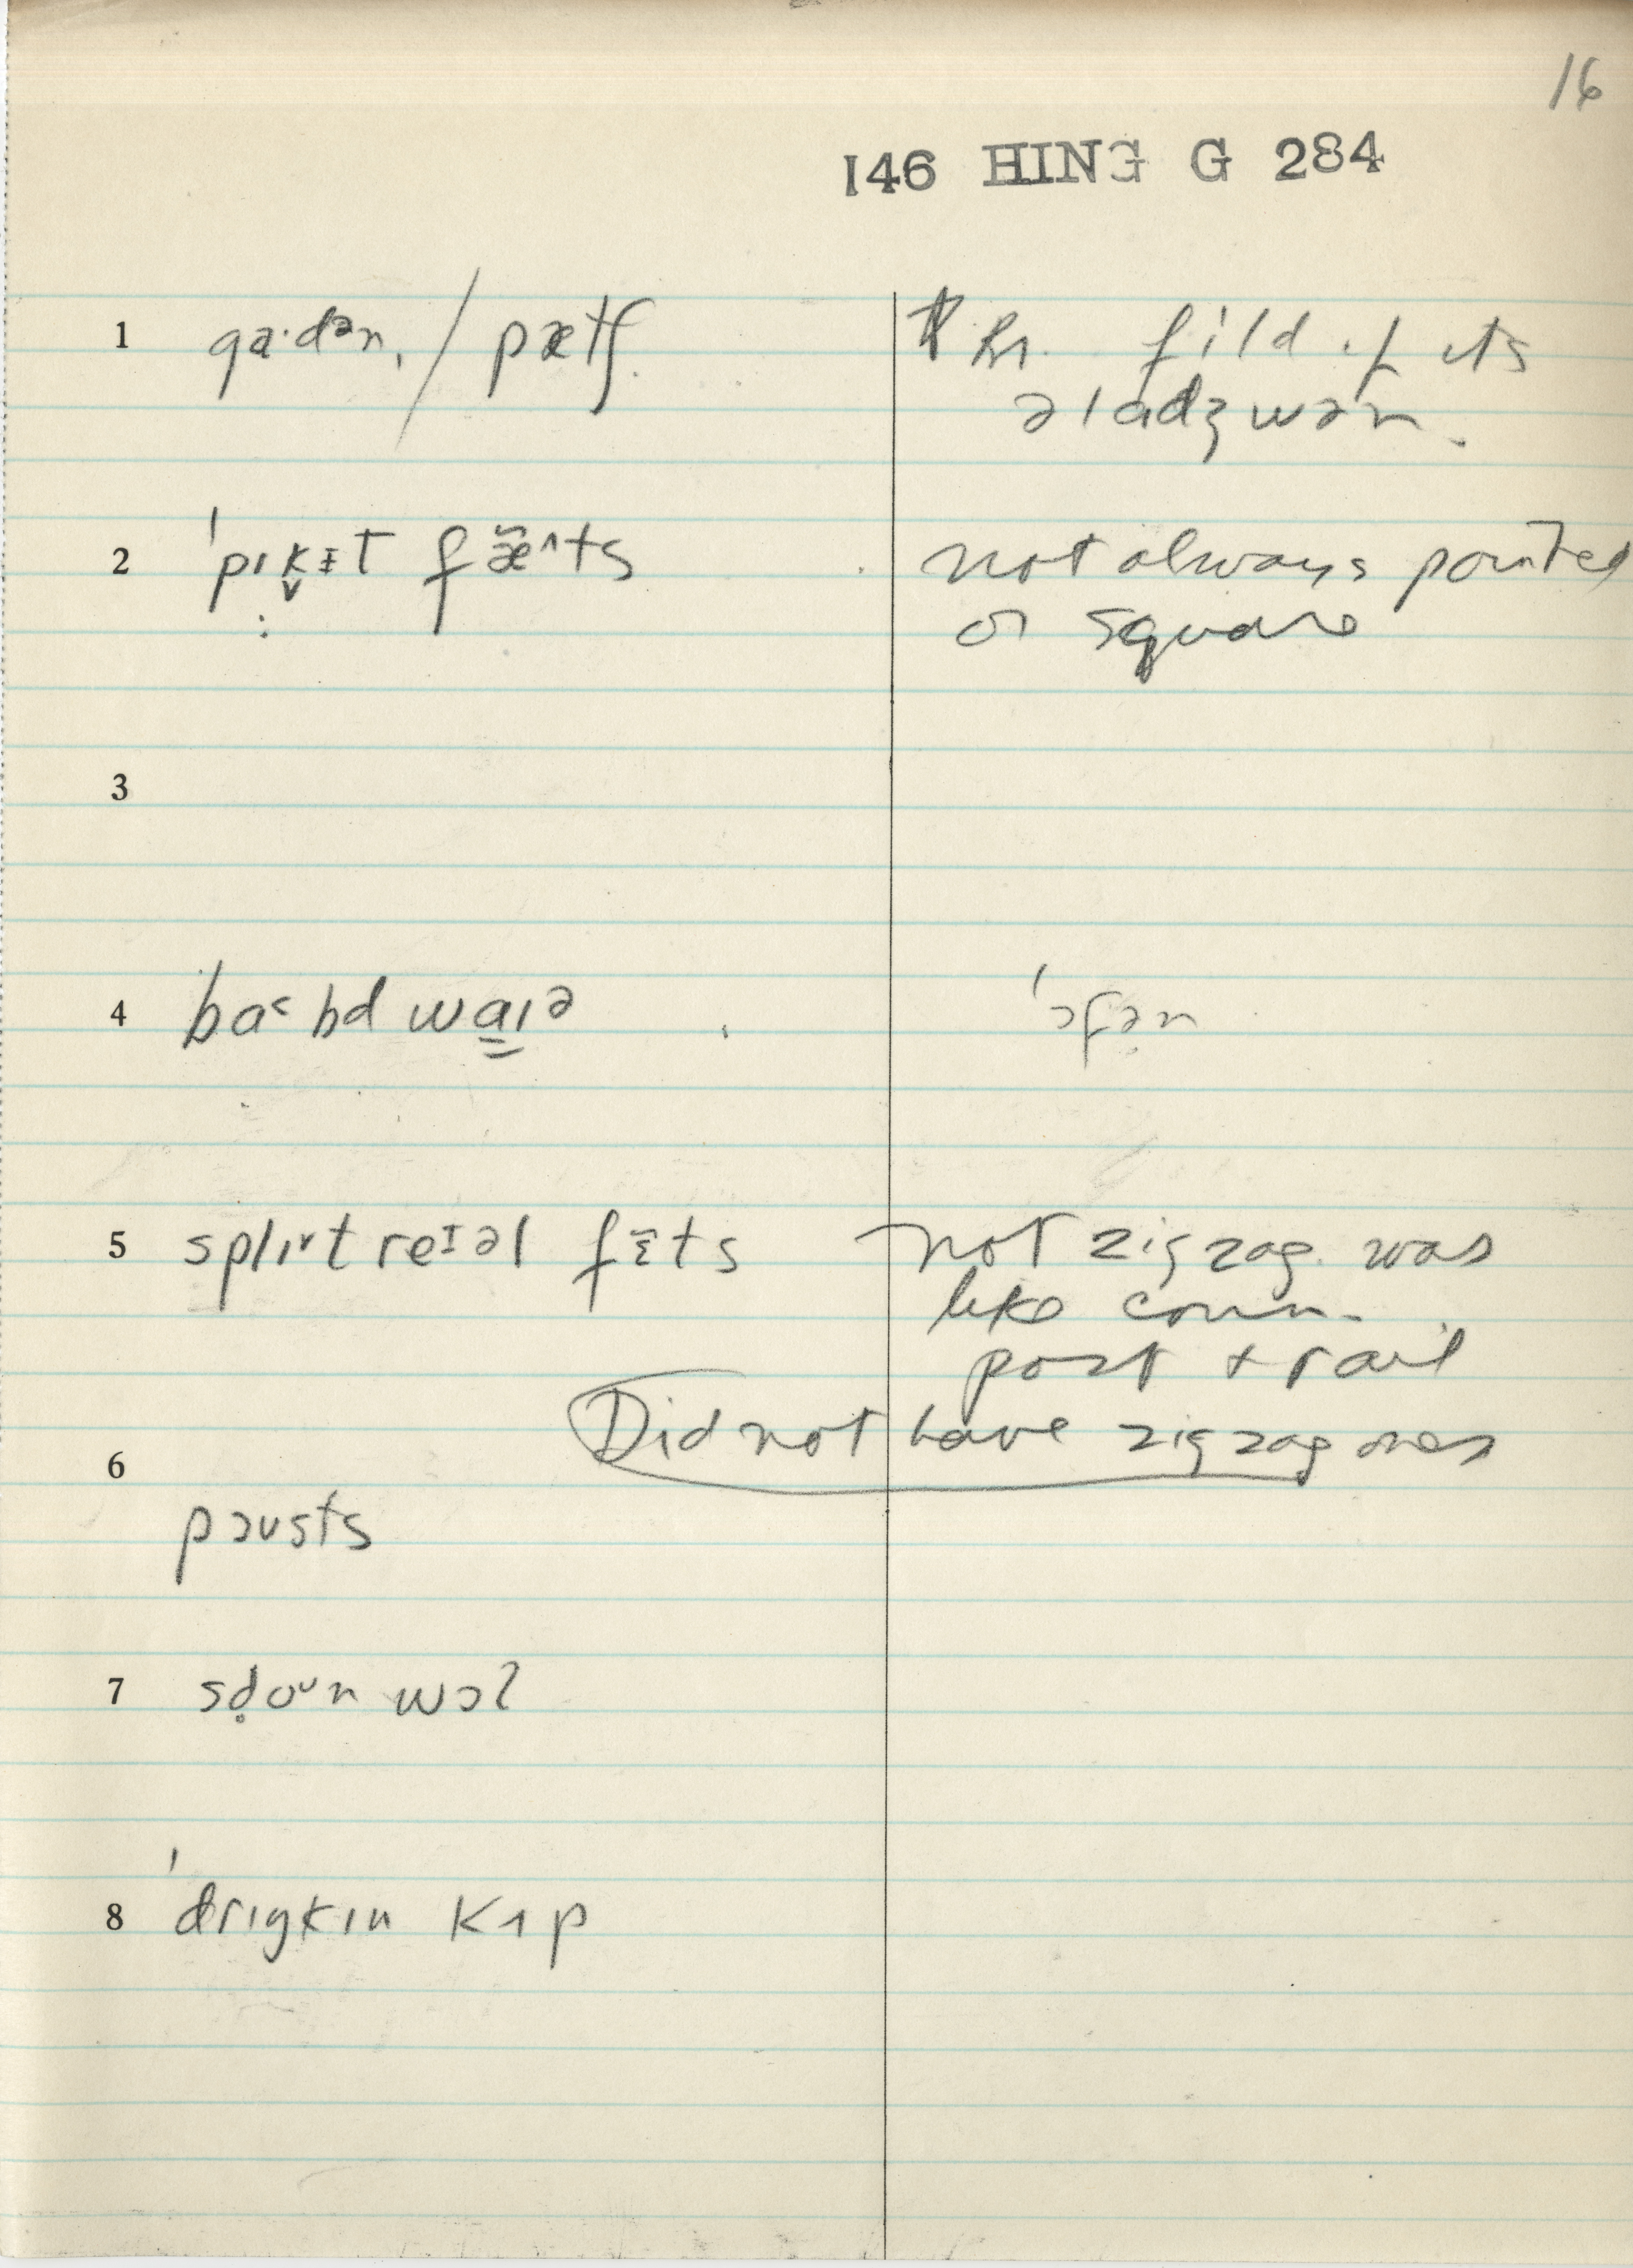 16
146 HING G 284
1 ga·dən, / pætʃ. fild if its
əladʒwən.
2 ˈpɪk̬ɨt fæ̃^ts not always pointed
or square
3
4 ba˂bd waɪə ˈɔfən
5 splɪ˅t reɪəl fɛ̃ts not zigzag. was
like conn.
post + rail
Did not have zigzag ones
6
pəusts
7 sd̥oʊn wɔl
8 ˈdrɪŋkɪn kʌp